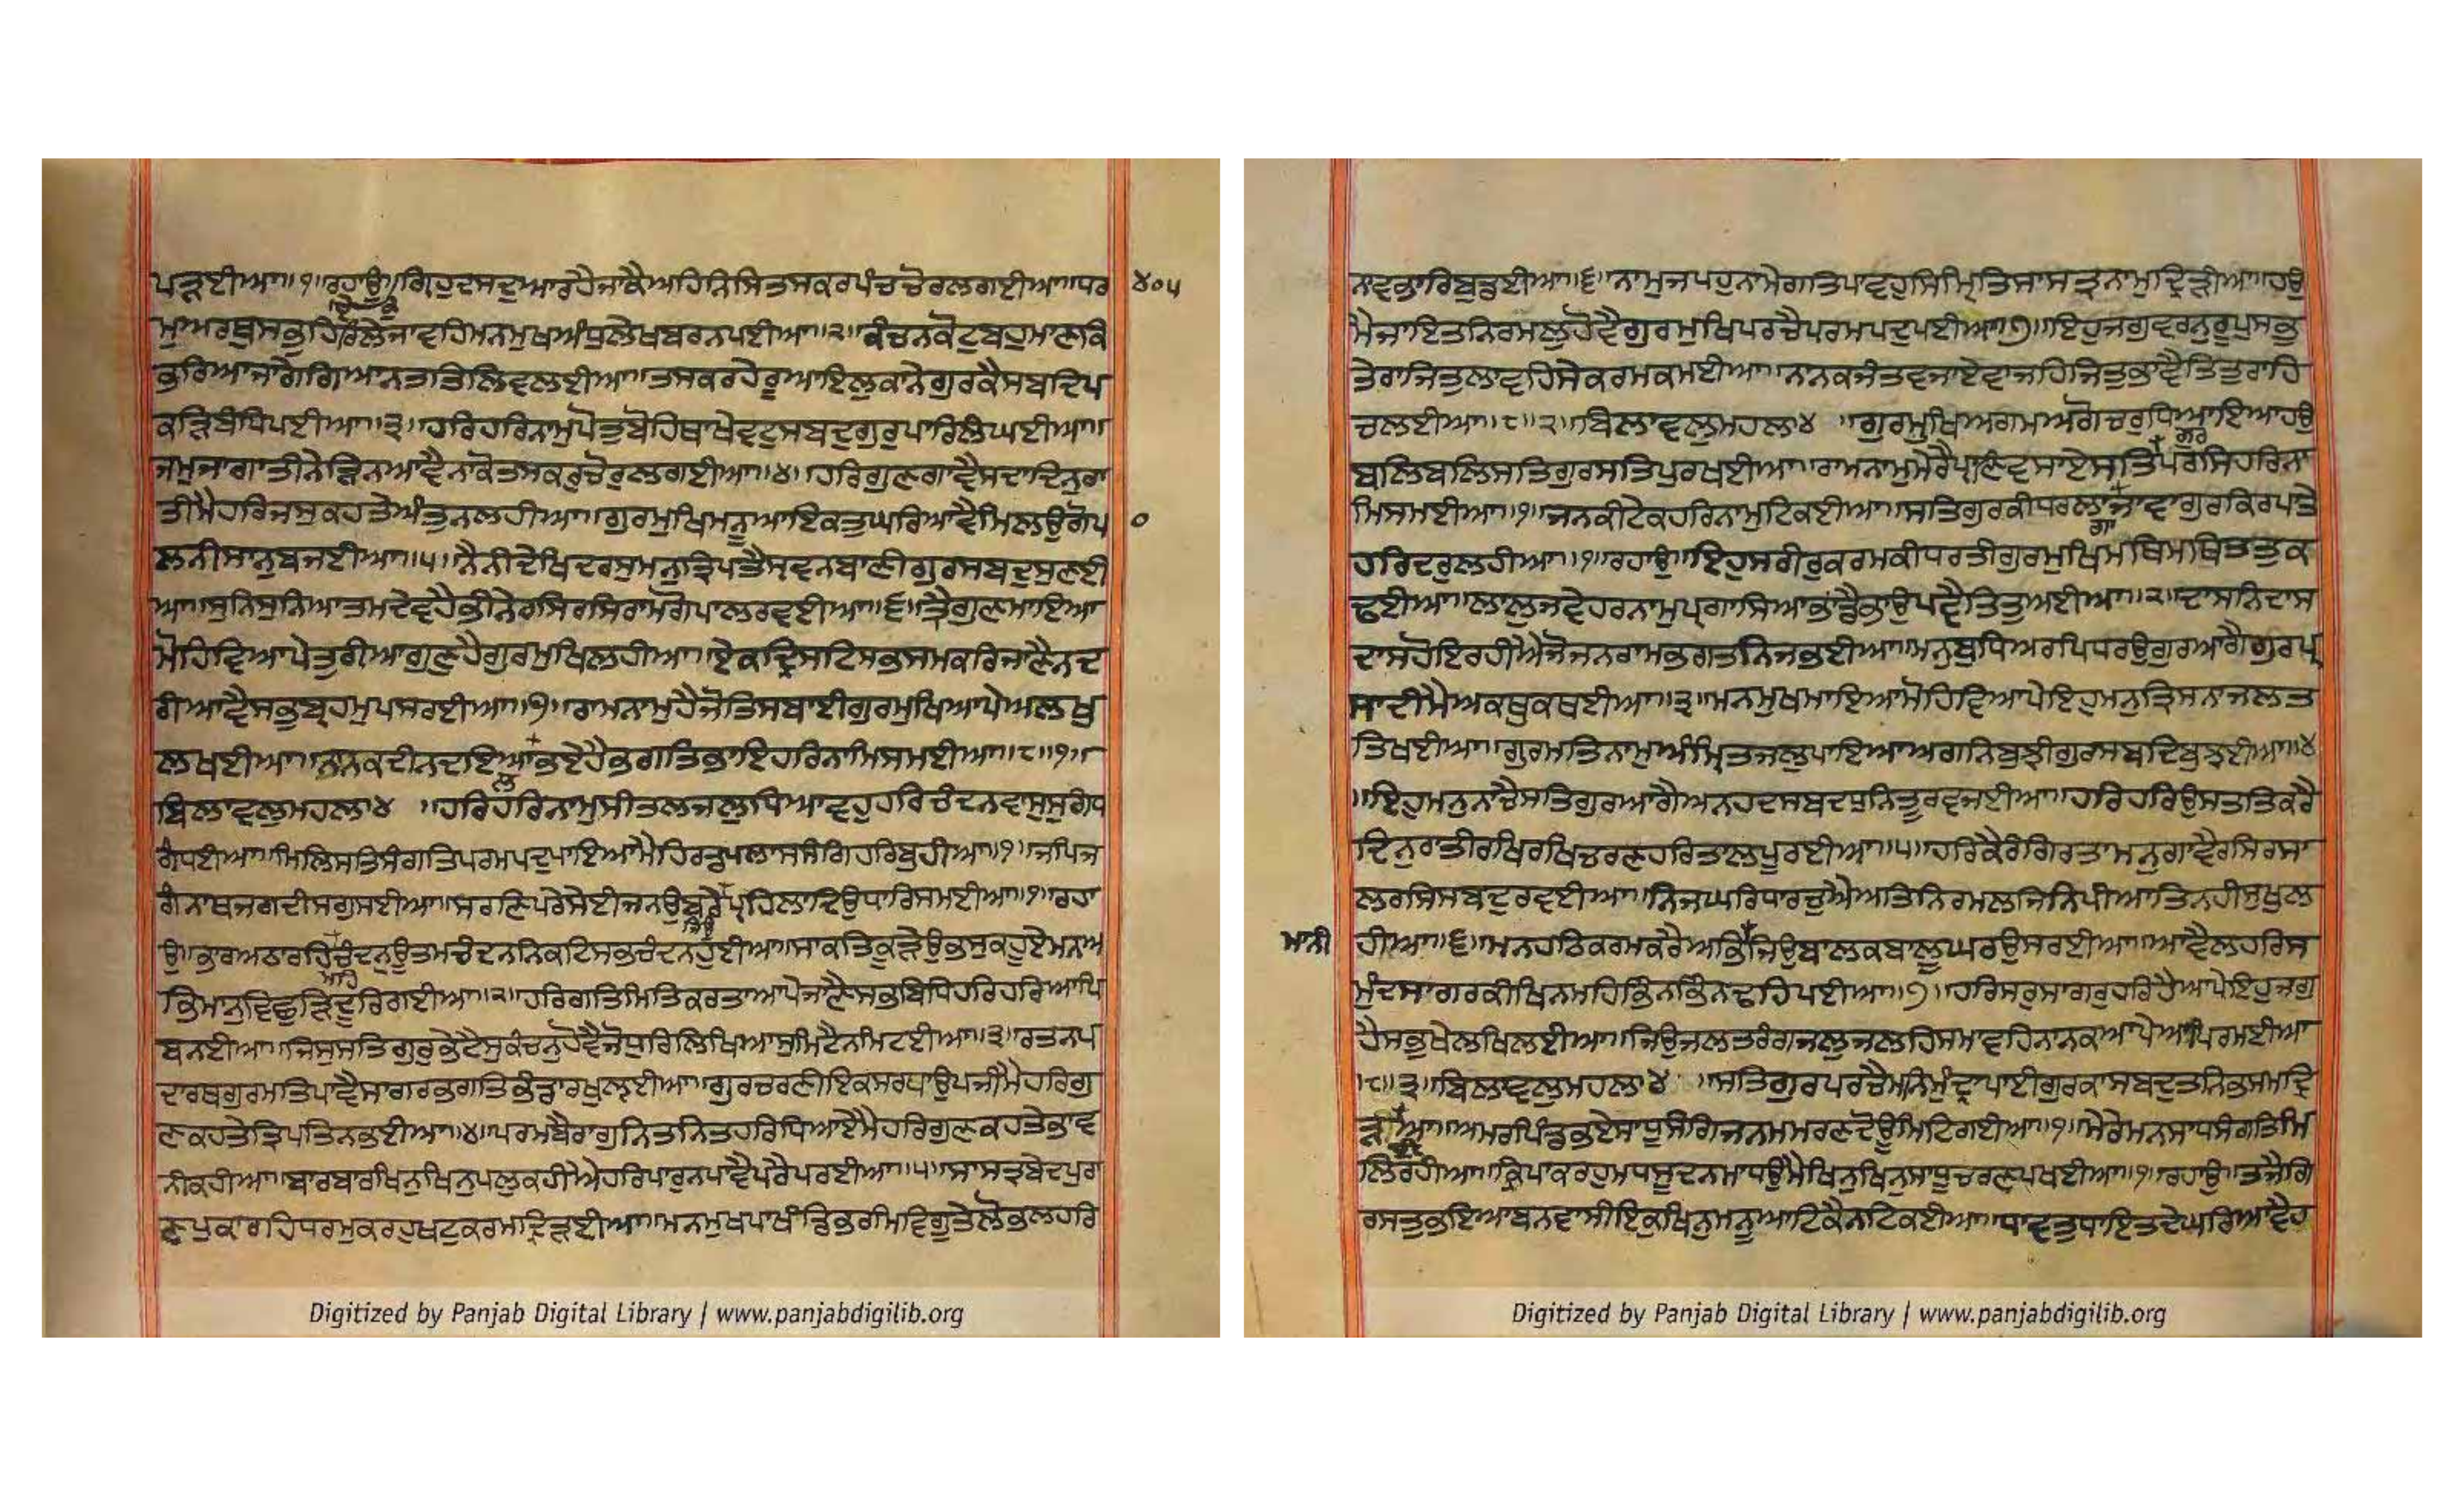 ਪਤੜਈਆ॥੧॥ਰਹਾਉ॥ਗਿਹੁਦਸਦੁਆਰਹੈਜਾਕੈਅਹਿਨਿਸਿਤਸਕਰਪੰਚਚੋਰਲਗਈਆ॥ਧਰ
੪੦੫
ਮੁਅਰਥੁਸਭੁਹਿਰਿਲੇਜਾਵਹਿਮਨਮੁਖਅੰਧੁਲੇਖਬਰਨਪਈਆ॥੨॥ਕੰਚਨਕੋਟੁਬਹੁਮਾਣਕਿ
ਭਰਿਆਜਾਗੇਗਿਆਨਤਤਿਲਿਵਲਈਆ॥ਤਸਕਰਹੇਰੂਆਇਲੁਕਾਨੇਗੁਰਕੈਸਬਦਿਪ
ਕੜਿਬੰਧਿਪਈਆ॥੩॥ਹਰਿਹਰਿਨਾਮੁਪੋਤੁਬੋਹਿਥਾਖੇਵਟੁਸਬਦੁਗੁਰੁਪਾਰਿਲੰਘਈਆ॥
ਜਮੁਜਾਗਾਤੀਨੇੜਿਨਆਵੈਨਾਕੋਤਸਕਰੁਚੋਰੁਲਗਈਆ॥੪॥ਹਰਿਗੁਣਗਾਵੈਸਦਾਦਿਨੁਰਾ
ਤੀਮੈਹਰਿਜਸੁਕਹਤੇਅੰਤੁਨਲਹੀਆ॥ਗੁਰਮੁਖਿਮਨੂਆਇਕਤੁਘਰਿਆਵੈਮਿਲਉਗੋਪ
੦
ਲਨੀਸਾਨੁਬਜਈਆ॥੫॥ਨੈਨੀਦੇਖਿਦਰਸੁਮਨੁਤ੍ਰਿਪਤੈਸ੍ਰਵਨਬਾਣੀਗੁਰਸਬਦੁਸੁਣਈ
ਆ॥ਸੁਨਿਸੁਨਿਆਤਮਦੇਵਹੈਭੀਨੇਰਸਿਰਸਿਰਾਮਗੋਪਾਲਰਵਈਆ॥੬॥ਤ੍ਰੈਗੁਣਮਾਇਆ
ਮੋਹਿਵਿਆਪੇਤੁਰੀਆਗੁਣੁਹੈਗੁਰਮੁਖਿਲਹੀਆ॥ਏਕਦ੍ਰਿਸਟਿਸਭਸਮਕਰਿਜਾਣੈਨਦ
ਰੀਆਵੈਸਭੁਬ੍ਰਹਮੁਪਸਰਈਆ॥੭॥ਰਾਮਨਾਮੁਹੈਜੋਤਿਸਬਾਈਗੁਰਮੁਖਿਆਪੇਅਲਖੁ
ਲਖਈਆ॥ਨਾਨਕਦੀਨਦਇਆਲਭਏਹੈਭਗਤਿਭਾਇਹਰਿਨਾਮਿਸਮਈਆ॥੮॥੧॥
ਬਿਲਾਵਲੁਮਹਲਾ੪ ॥ਹਰਿਹਰਿਨਾਮੁਸੀਤਲਜਲੁਧਿਆਵਹੁਹਰਿਚੰਦਨਵਾਸੁਸੁਗੰਧ
ਗੰਧਈਆ॥ਮਿਲਿਸਤਿਸੰਗਤਿਪਰਮਪਦੁਪਾਇਆਮੈਹਿਰਡਪਲਾਸਸੰਗਿਹਰਿਬੁਹੀਆ॥੧॥ਜਪਿਜ
ਗੰਨਾਥਜਗਦੀਸਗੁਸਈਆ॥ਸਰਣਿਪਰੇਸੇਈਜਨਉਬਰੇਪ੍ਰਹਿਲਾਦਿਉਧਾਰਿਸਮਈਆ॥੧॥ਰਹਾ
ਉ॥ਭਾਰਅਠਾਰਹਿਚੰਦਨੁਉਤਮਚੰਦਨਨਿਕਟਿਸਭਚੰਦਨਹੁਈਆ॥ਸਾਕਤਿਕੂੜੇਉਭਸੁਕਹੂਏਮਨਅ
ਭਿਮਾਨੁਵਿਛੁੜਿਦੂਰਿਗਈਆ॥੨॥ਹਰਿਗਤਿਮਿਤਿਕਰਤਾਆਪੇਜਾਣੈਸਭਬਿਧਿਹਰਿਹਰਿਆਪਿ
ਬਨਈਆ॥ਜਿਸੁਸਤਿਗੁਰੁਭੇਟੈਸੁਕੰਚਨੁਹੋਵੈਜੋਧੁਰਿਲਿਖਿਆਸੁਮਿਟੈਨਮਿਟਈਆ॥੩॥ਰਤਨਪ
ਦਾਰਥਗੁਰਮਤਿਪਾਵੈਸਾਗਰਭਗਤਿਭੰਡਾਰਖੁਲ੍ਹਈਆ॥ਗੁਰਚਰਣੀਇਕਸਰਧਾਉਪਜੀਮੈਹਰਿਗੁ
ਣਕਹਤੇਤ੍ਰਿਪਤਿਨਭਈਆ॥੪॥ਪਰਮਬੈਰਾਗੁਨਿਤਨਿਤਹਰਿਧਿਆਏਮੈਹਰਿਗੁਣਕਹਤੇਭਾਵ
ਨੀਕਹੀਆ॥ਬਾਰਬਾਰਖਿਨੁਖਿਨੁਪਲੁਕਹੀਐਹਰਿਪਾਰੁਨਪਾਵੈਪਰੈਪਰਈਆ॥੫॥ਸਾਸਤ੍ਰਬੇਦਪੁਰਾ
ਣਪੁਕਾਰਹਿਧਰਮੁਕਰਹੁਖਟੁਕਰਮਦ੍ਰਿੜਈਆ॥ਮਨਮੁਖਪਾਖੰਡਿਭਰਮਿਵਿਗੂਤੇਲੋਭਲਹਰਿ
ਨਾਵਭਾਰਿਬੁਡਈਆ॥੬॥ਨਾਮੁਜਪਹੁਨਾਮੇਗਤਿਪਾਵਹੁਸਿਮ੍ਰਿਤਿਸਾਸਤ੍ਰਨਾਮੁਦ੍ਰਿੜੀਆ॥ਹਉ
ਮੈਜਾਇਤਨਿਰਮਲੁਹੋਵੈਗੁਰਮੁਖਿਪਰਚੈਪਰਮਪਦੁਪਈਆ॥੭॥ਇਹੁਜਗੁਵਰਨੁਰੂਪੁਸਭੁ
ਤੇਰਾਜਿਤੁਲਾਵਹਿਸੇਕਰਮਕਮਈਆ॥ਨਾਨਕਜੰਤਵਜਾਏਵਾਜਹਿਜਿਤੁਭਾਵੈਤਿਤੁਰਾਹਿ
ਚਲਈਆ॥੮॥੨॥ਬਿਲਾਵਲੁਮਹਲਾ੪ ॥ਗੁਰਮੁਖਿਅਗਮਅਗੋਚਰੁਧਿਆਇਆਹਉ
ਬਲਿਬਲਿਸਤਿਗੁਰਸਤਿਪੁਰਖਈਆ॥ਰਾਮਨਾਮੁਮੇਰੈਪ੍ਰਾਣਿਵਸਾਏਸਤਿਗੁਰਪਰਸਿਹਰਿਨਾ
ਮਿਸਮਈਆ॥੧॥ਜਨਕੀਟੇਕਹਰਿਨਾਮੁਟਿਕਈਆ॥ਸਤਿਗੁਰਕੀਧਰਲਾਗਾਜਾਵਾਗੁਰਕਿਰਪਤੇ
ਹਰਿਦਰੁਲਹੀਆ॥੧॥ਰਹਾਉ॥ਇਹੁਸਰੀਰੁਕਰਮਕੀਧਰਤੀਗੁਰਮੁਖਿਮਥਿਮਥਿਤਤੁਕ
ਢਈਆ॥ਲਾਲੁਜਵੇਹਰਨਾਮੁਪ੍ਰਗਾਸਿਆਭਾਂਡੈਭਾਉਪਵੈਤਿਤੁਅਈਆ॥੨॥ਦਾਸਨਿਦਾਸ
ਦਾਸਹੋਇਰਹੀਐਜੋਜਨਰਾਮਭਗਤਨਿਜਭਈਆ॥ਮਨੁਬੁਧਿਅਰਪਿਧਰਉਗੁਰਆਗੈਗੁਰਪ੍ਰ
ਸਾਦੀਮੈਅਕਥੁਕਥਈਆ॥੩॥ਮਨਮੁਖਮਾਇਆਮੋਹਿਵਿਆਪੇਇਹੁਮਨੁਤ੍ਰਿਸਨਾਜਲਤ
ਤਿਖਈਆ॥ਗੁਰਮਤਿਨਾਮੁਅੰਮ੍ਰਿਤਜਲੁਪਾਇਆਅਗਨਿਬੁਝੀਗੁਰਸਬਦਿਬੁਝਈਆ॥੪
॥ਇਹੁਮਨੁਨਾਚੈਸਤਿਗੁਰਆਗੈਅਨਹਦਸਬਦਧੁਨਿਤੂਰਵਜਈਆ॥ਹਰਿਹਰਿਉਸਤਤਿਕਰੈ
ਦਿਨੁਰਾਤੀਰਖਿਰਖਿਚਰਣਹਰਿਤਾਲਪੂਰਈਆ॥੫॥ਹਰਿਕੈਰੰਗਿਰਤਾਮਨੁਗਾਵੈਰਸਿਰਸਾ
ਲਰਸਿਸਬਦੁਰਵਈਆ॥ਨਿਜਘਰਿਧਾਰਚੁਐਅਤਿਨਿਰਮਲਜਿਨਿਪੀਆਤਿਨਹੀਸੁਖੁਲ
ਮਾਨੀ
ਹੀਆ॥੬॥ਮਨਹਠਿਕਰਮਕਰੈਅਭਿਜਿਉਬਾਲਕਬਾਲੂਘਰਉਸਰਈਆ॥ਆਵੈਲਹਰਿਸ
ਮੁੰਦਸਾਗਰਕੀਖਿਨਮਹਿਭਿੰਨਭਿੰਨਢਹਿਪਈਆ॥੭॥ਹਰਿਸਰੁਸਾਗਰੁਹਰਿਹੈਆਪੇਇਹੁਜਗੁ
ਹੈਸਭੁਖੇਲਖਿਲਈਆ॥ਜਿਉਜਲਤਰੰਗਜਲੁਜਲਹਿਸਮਾਵਹਿਨਾਨਕਆਪੇਆਪਿਰਮਈਆ
॥੮॥੩॥ਬਿਲਾਵਲੁਮਹਲਾ੪ ॥ਸਤਿਗੁਰਪਰਚੈਮਨਿਮੁੰਦ੍ਰਾਪਾਈਗੁਰਕਾਸਬਦੁਤਨਿਭਸਮਦ੍ਰਿ
ੜਈਆ॥ਅਮਰਪਿੰਡਭਏਸਾਧੂਸੰਗਿਜਨਮਮਰਣਦੋਊਮਿਟਿਗਈਆ॥੧॥ਮੇਰੇਮਨਸਾਧਸੰਗਤਿਮਿ
ਲਿਰਹੀਆ॥ਕ੍ਰਿਪਾਕਰਹੁਮਧਸੂਦਨਮਾਧਉਮੈਖਿਨੁਖਿਨੁਸਾਧੂਚਰਣਪਖਈਆ॥੧॥ਰਹਾਉ॥ਤਜੈਗਿ
ਰਸਤੁਭਇਆਬਨਵਾਸੀਇਕੁਖਿਨੁਮਨੂਆਟਿਕੈਨਟਿਕਈਆ॥ਧਾਵਤੁਧਾਇਤਦੇਘਰਿਆਵੈਹ
Digitized by Panjab Digital Library | www.panjabdigilib.org
Digitized by Panjab Digital Library | www.panjabdigilib.org